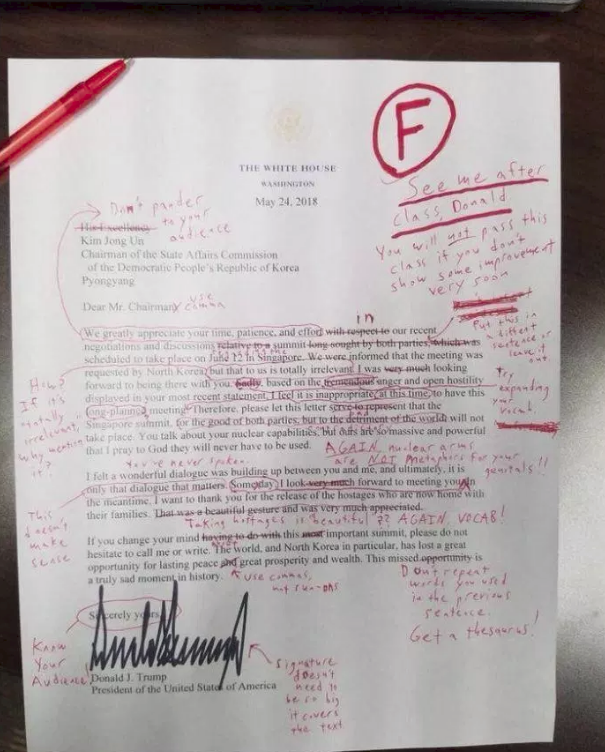 F
See me after
class, Donald
You will not pass this
class if you don't
show some improvement
very soon
THE WHITE HOUSE
WASHINGTON
May 24, 2018
Don't pander
to your
audience
His Excellency
Kim Jong Un
Chairman of the State Affairs Commission
of the Democratic People's Republic of Korea
Pyongyang
Dear Mr. Chairman
use
comma
in
We greatly appreciate your time, patience, and effort with respect to our recent
negotiations and discussions relative to a summit long sought by both parties, which was
scheduled to take place on June 12 in Singapore. We were informed that the meeting was
requested by North Korea, but that to us is totally irrelevant. I was very much looking
forward to being there with you. Sadly, based on the tremendous anger and open hostility
displayed in your most recent statement, I feel it is inappropriate, at this time, to have this
long-planned meeting. Therefore, please let this letter serve to represent that the
Singapore summit, for the good of both parties, but to the detriment of the world, will not
take place. You talk about your nuclear capabilities, but ours are so massive and powerful
that I pray to God they will never have to be used.
Put this in
different
sentence or
leave it
out
Try
expanding
your
vocab
How?
If it's
totally
irrelevant,
why mention
it?
AGAIN, nuclear arms
are NOT metaphors for your
genitals!!
You've never spoken
I felt a wonderful dialogue was building up between you and me, and ultimately, it is
only that dialogue that matters. Someday, I look very much forward to meeting you. In
the meantime, I want to thank you for the release of the hostages who are now home with
their families. That was a beautiful gesture and was very much appreciated.
This
doesn't
make
sense
Taking hostages is beautiful?? AGAIN, VOCAB!
If you change your mind having to do with this most important summit, please do not
hesitate to call me or write. The world, and North Korea in particular, has lost a great
opportunity for lasting peace and great prosperity and wealth. This missed opportunity is
a truly sad moment in history.
Use commas,
not run-ons
Don't repeat
words you used
in the previous
sentence.
Get a thesaurus!
Sincerely yours,
Know
Your
Audience!
Signature
doesn't
need to
be so big
it covers
the text
Donald J. Trump
President of the United States of America